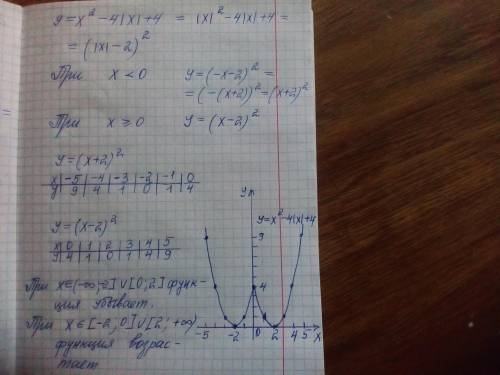 y = x² - 4|x| + 4 = |x|² - 4|x| + 4 =
= (|x| - 2)²
При x < 0 y = (-x-2)² =
= (-(x+2))² = (x+2)²
При x ≥ 0 y = (x-2)²
y = (x+2)²
x | -5 | -4 | -3 | -2 | -1 | 0
y | 9 | 4 | 1 | 0 | 1 | 4
y = (x-2)²
x | 0 | 1 | 2 | 3 | 4 | 5
y | 4 | 1 | 0 | 1 | 4 | 9
При x∈(-∞;-2]∪[0;2] функ-
ция убывает.
При x∈[-2;0]∪[2;+∞)
функция возрас-
тает
y
y = x² - 4|x| + 4
9
4
-5 -2 0 2 4 5 x